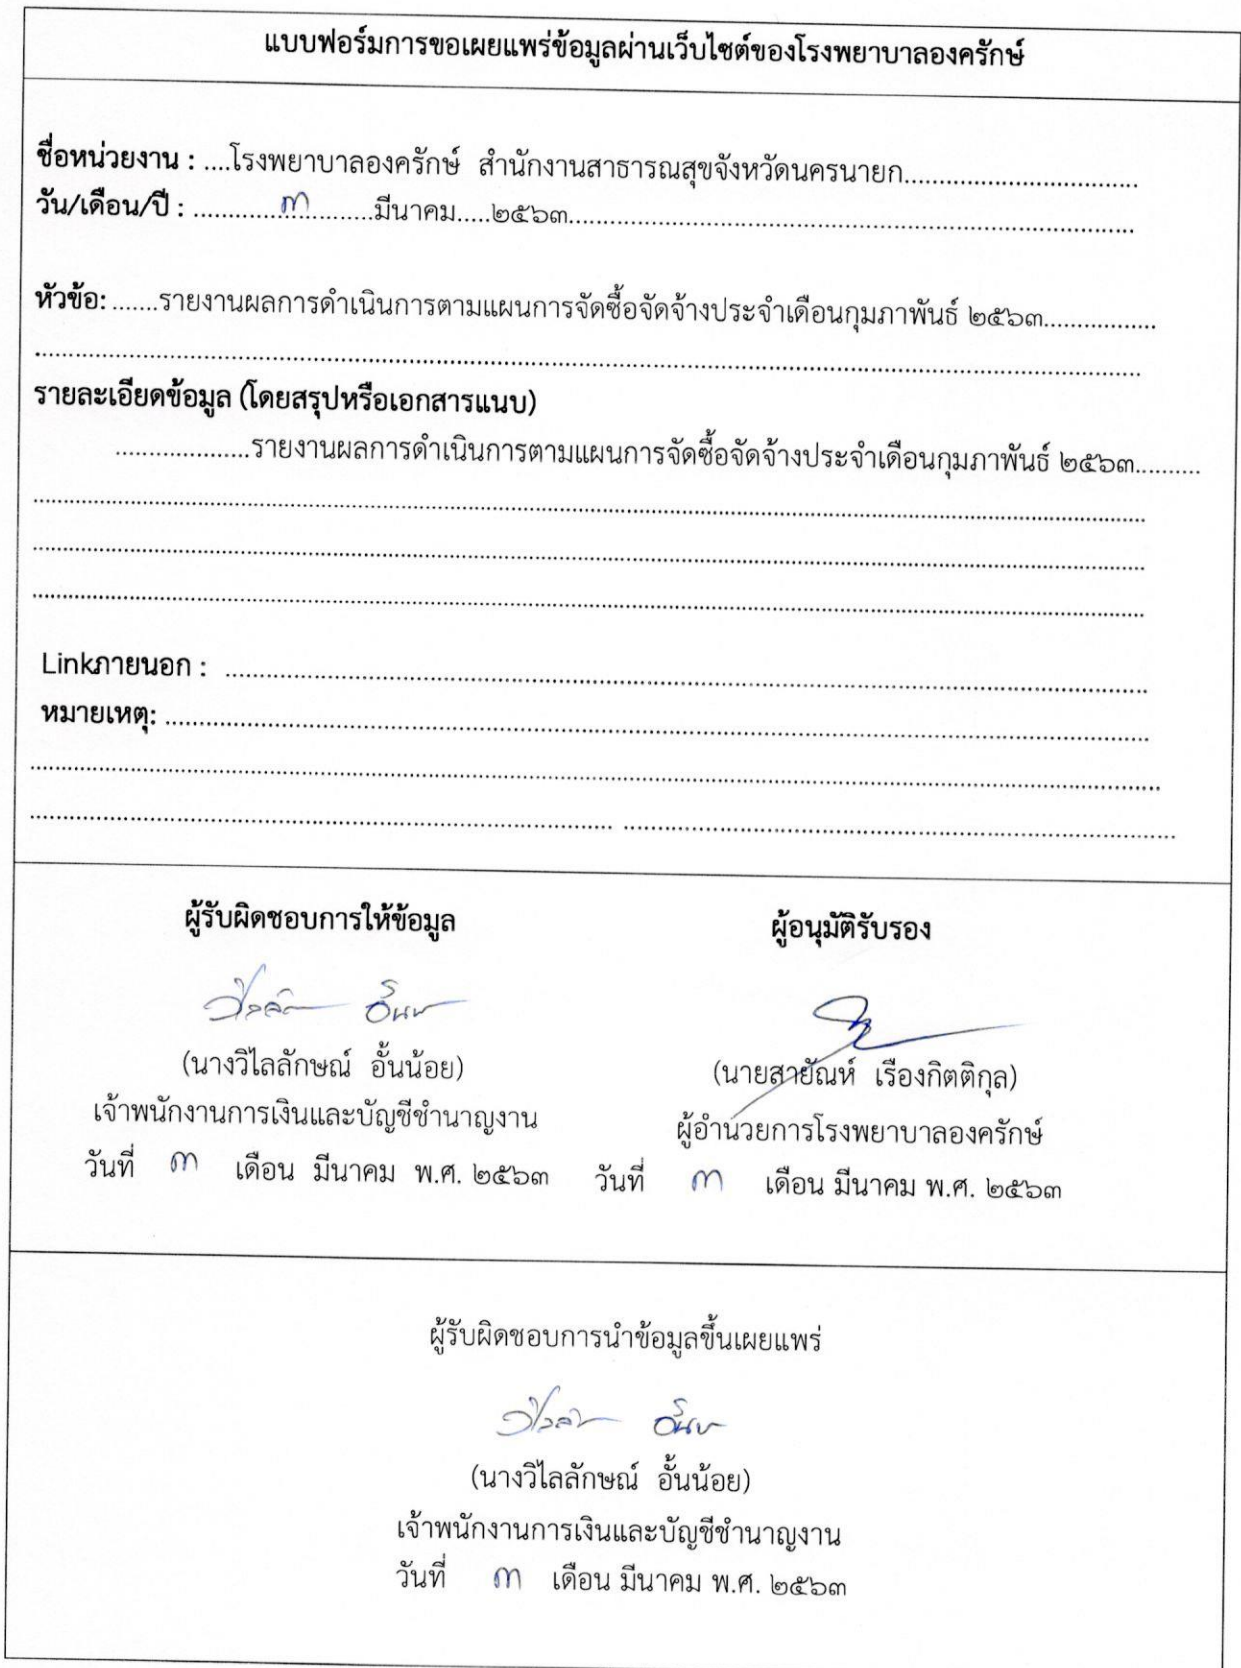 แบบฟอร์มการขอเผยแพร่ข้อมูลผ่านเว็บไซต์ของโรงพยาบาลองครักษ์
ชื่อหน่วยงาน : ....โรงพยาบาลองครักษ์ สำนักงานสาธารณสุขจังหวัดนครนายก..................................
วัน/เดือน/ปี : .............๓..........มีนาคม.....๒๕๖๓....................................................................................
หัวข้อ: .......รายงานผลการดำเนินการตามแผนการจัดซื้อจัดจ้างประจำเดือนกุมภาพันธ์ ๒๕๖๓.................
รายละเอียดข้อมูล (โดยสรุปหรือเอกสารแนบ)
....................รายงานผลการดำเนินการตามแผนการจัดซื้อจัดจ้างประจำเดือนกุมภาพันธ์ ๒๕๖๓..........
Linkภายนอก : ..........................................................................................................................................
หมายเหตุ: ..................................................................................................................................................
ผู้รับผิดชอบการให้ข้อมูล ผู้อนุมัติรับรอง
(นางวิไลลักษณ์ อั้นน้อย) (นายสายัณห์ เรืองกิตติกุล)
เจ้าพนักงานการเงินและบัญชีชำนาญงาน ผู้อำนวยการโรงพยาบาลองครักษ์
วันที่ ๓ เดือน มีนาคม พ.ศ. ๒๕๖๓ วันที่ ๓ เดือน มีนาคม พ.ศ. ๒๕๖๓
ผู้รับผิดชอบการนำข้อมูลขึ้นเผยแพร่
(นางวิไลลักษณ์ อั้นน้อย)
เจ้าพนักงานการเงินและบัญชีชำนาญงาน
วันที่ ๓ เดือน มีนาคม พ.ศ. ๒๕๖๓